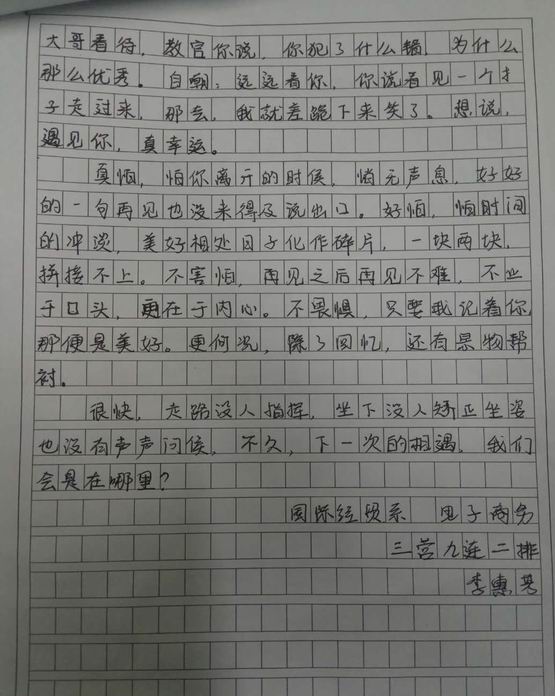 大哥看待，教官你说，你犯了什么错，为什么
那么优秀。自嘲：远远看你，你说看见一个
子走过来，那么，我就差跪下来哭了。想说，
遇见你，真幸运。
真怕，怕你离开的时候，悄无声息，好好
的一句再见也没来得及说出口。好怕，怕时间
的冲淡，美好相处日子化作碎片，一块两块，
拼接不上。不害怕，再见之后再见不难，不止
于口头，更在于内心。不畏惧，只要我记着你，
那便是美好。更何况，除了回忆，还有景物帮
衬。
很快，走路没人指挥，坐下没人矫正坐姿
也没有声声问候，不久，下一次的相遇，我们
会是在哪里？
国际经贸系 电子商务
三营九连二排
李惠